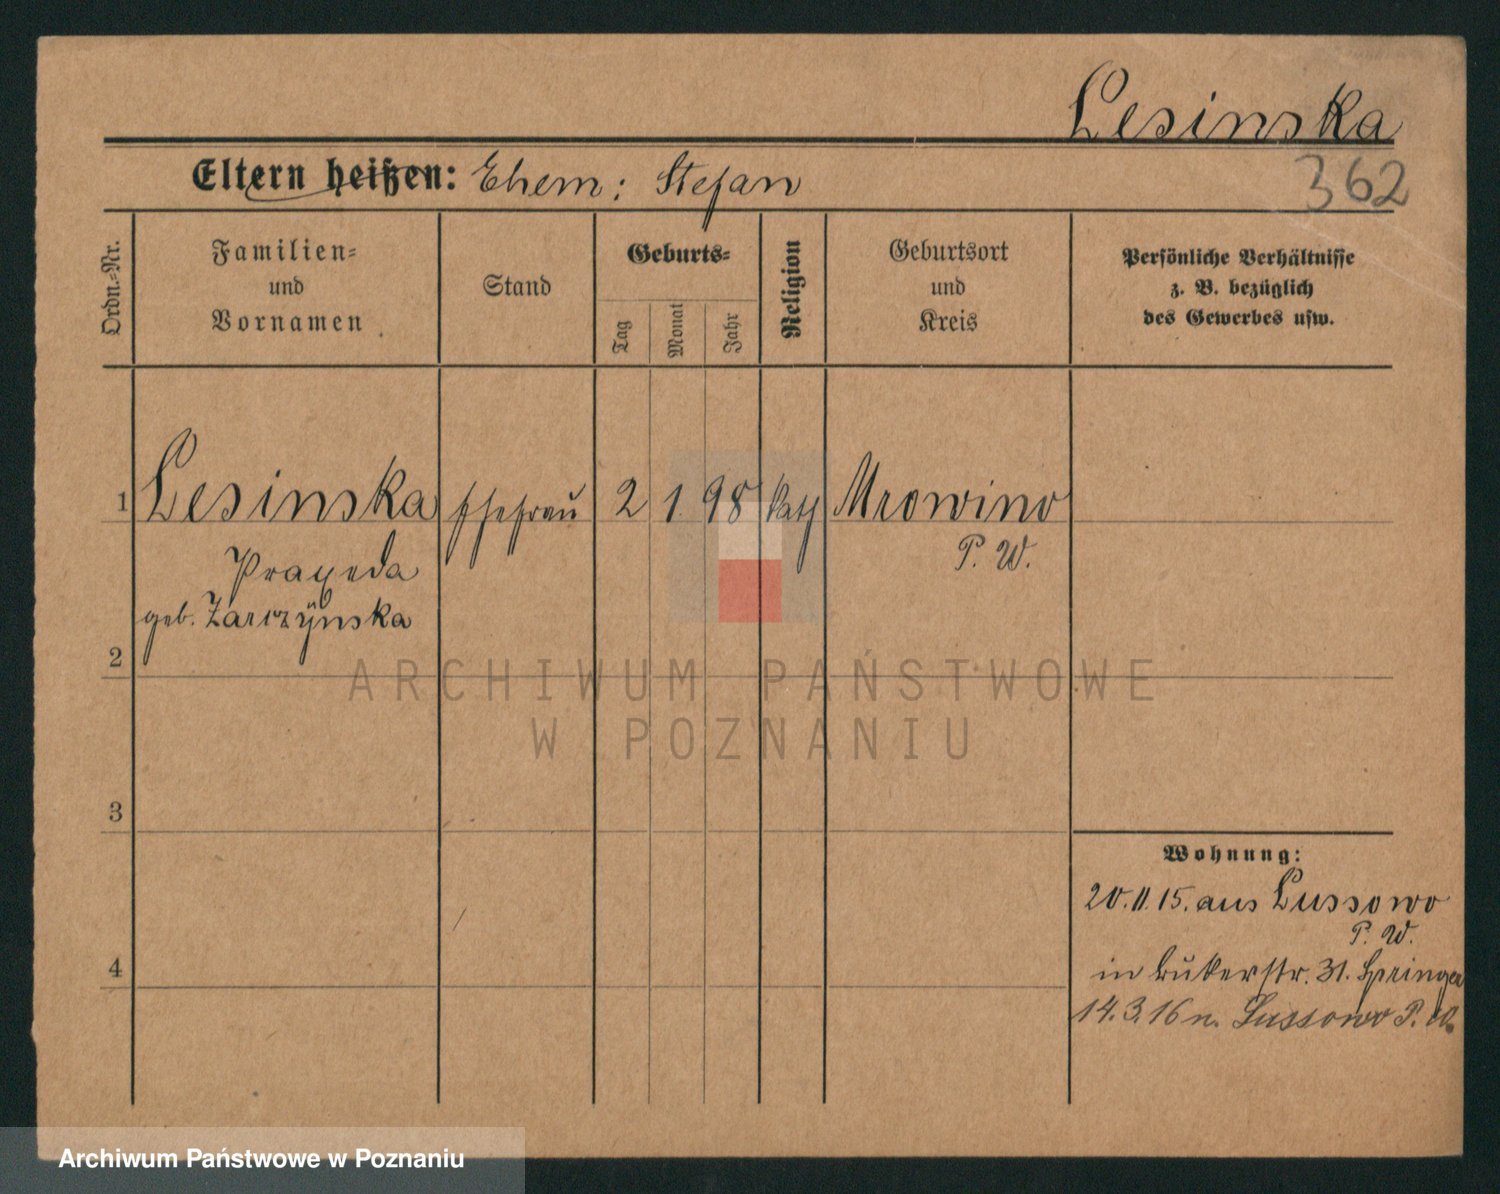 Lesinska
362
Eltern heißen: Ehem: Stefan
Ordn.-Nr.
Familien-
und
Vornamen
Stand
Geburts-
Tag
Monat
Jahr
Religion
Geburtsort
und
Kreis
Persönliche Verhältnisse
z. B. bezüglich
des Gewerbes usw.
1 Lesinska Ehefrau 2 1 98 kath Mrowino
P. W.
geb.
2
3
4
Wohnung:
20.11.15. aus Lussowo
P. W.
in Bukerstr. 31. Springer
14.3.16 n. Lussowo P. W.
ARCHIWUM PAŃSTWOWE
W POZNANIU
Archiwum Państwowe w Poznaniu